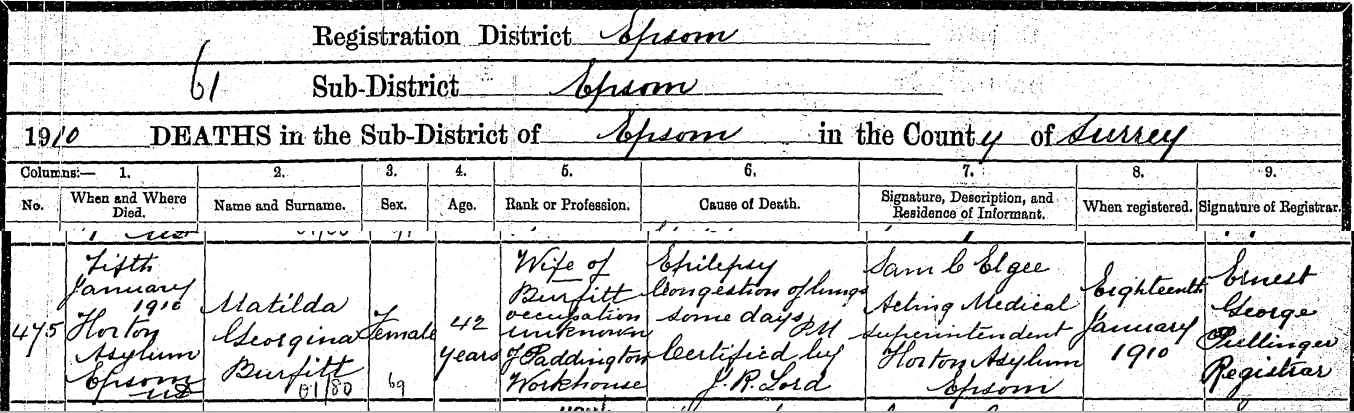 Registration District Epsom
61
Sub-District Epsom
1910 DEATHS in the Sub-District of Epsom in the County of Surrey
Columns:— 1. 2. 3. 4. 5. 6. 7. 8. 9.
No. When and Where Died. Name and Surname. Sex. Age. Rank or Profession. Cause of Death. Signature, Description, and Residence of Informant. When registered. Signature of Registrar.
475
Fifth
January
1910
Horton
Asylum
Epsom
Matilda
Georgina
Burfitt
01/80
Female
69
42
years
Wife of
Burfitt
occupation
unknown
of Paddington
Workhouse
Epilepsy
Congestion of lungs
some days PM
Certified by
J. R. Lord
Sam C Elgee
Acting Medical
superintendent
Horton Asylum
Epsom
Eighteenth
January
1910
Ernest
George
Pullinger
Registrar